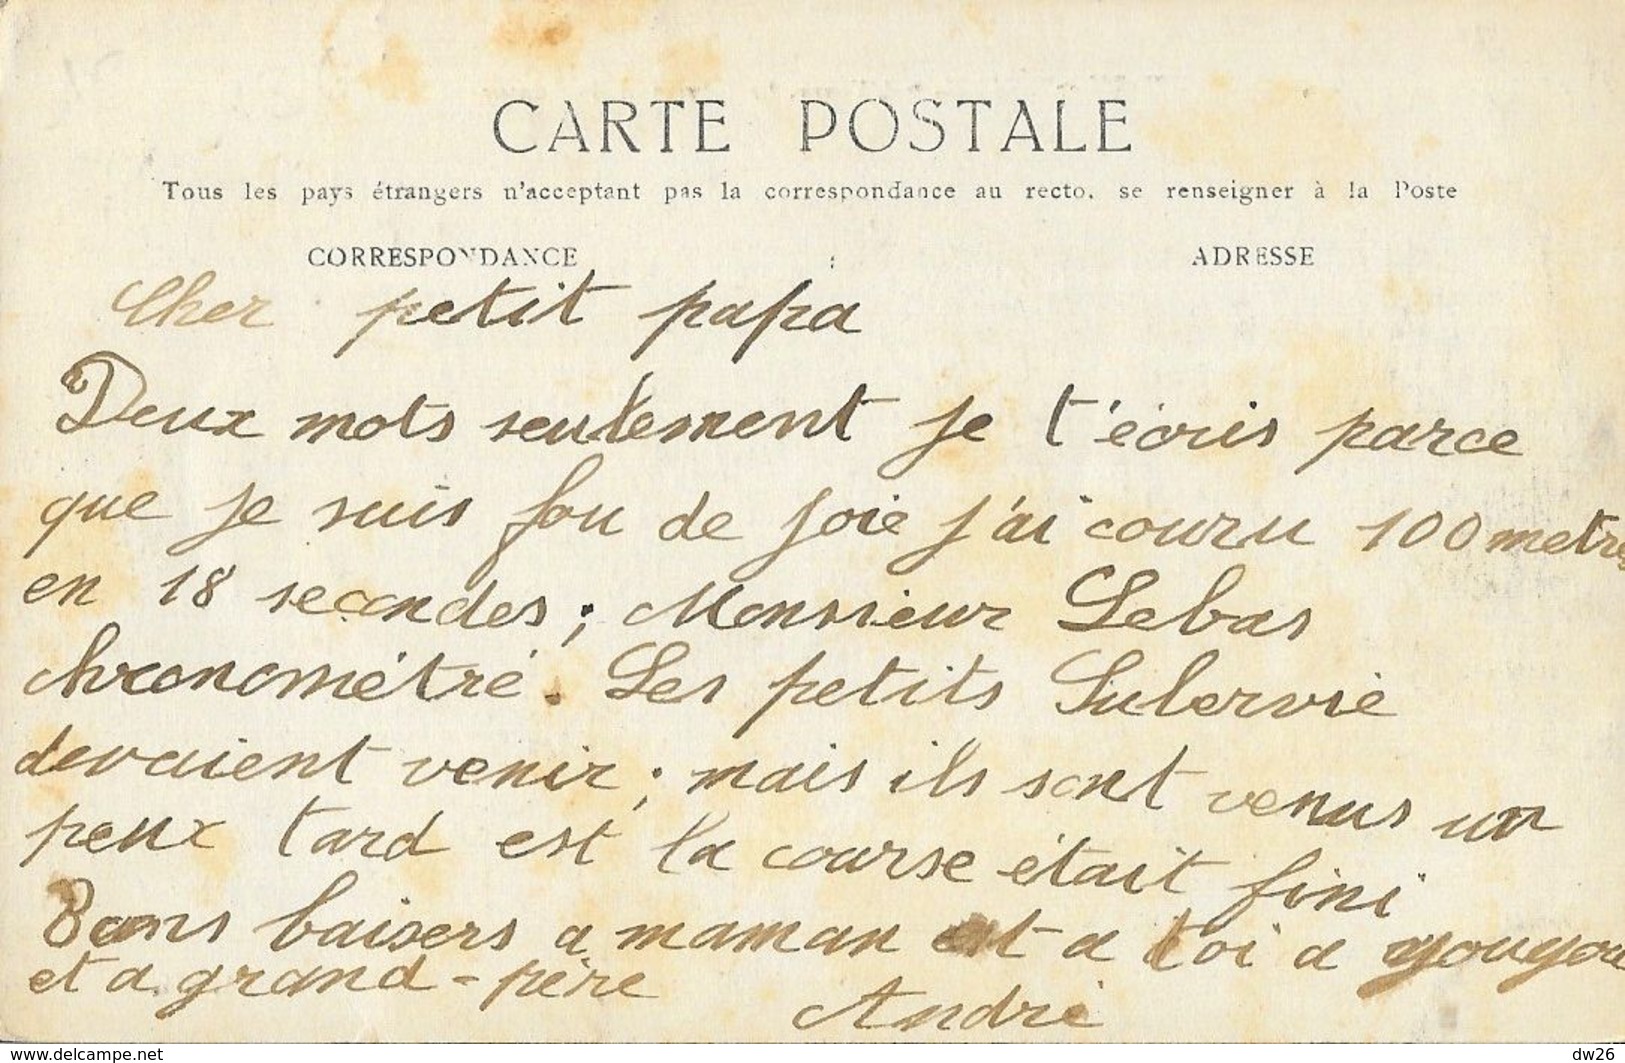 CARTE POSTALE
Tous les pays étrangers n'acceptant pas la correspondance au recto, se renseigner à la Poste
CORRESPONDANCE ADRESSE
Cher petit papa
Deux mots seulement je t'écris parce
que je suis fou de joie j'ai couru 100 metres
en 18 secondes; Monsieur Lebas
chronométré. Les petits Lulervie
devaient venir; mais ils sont venus un
peux tard est la course était fini
Bons baisers a maman et a toi a youyou
et a grand-père
André
www.delcampe.net dw26